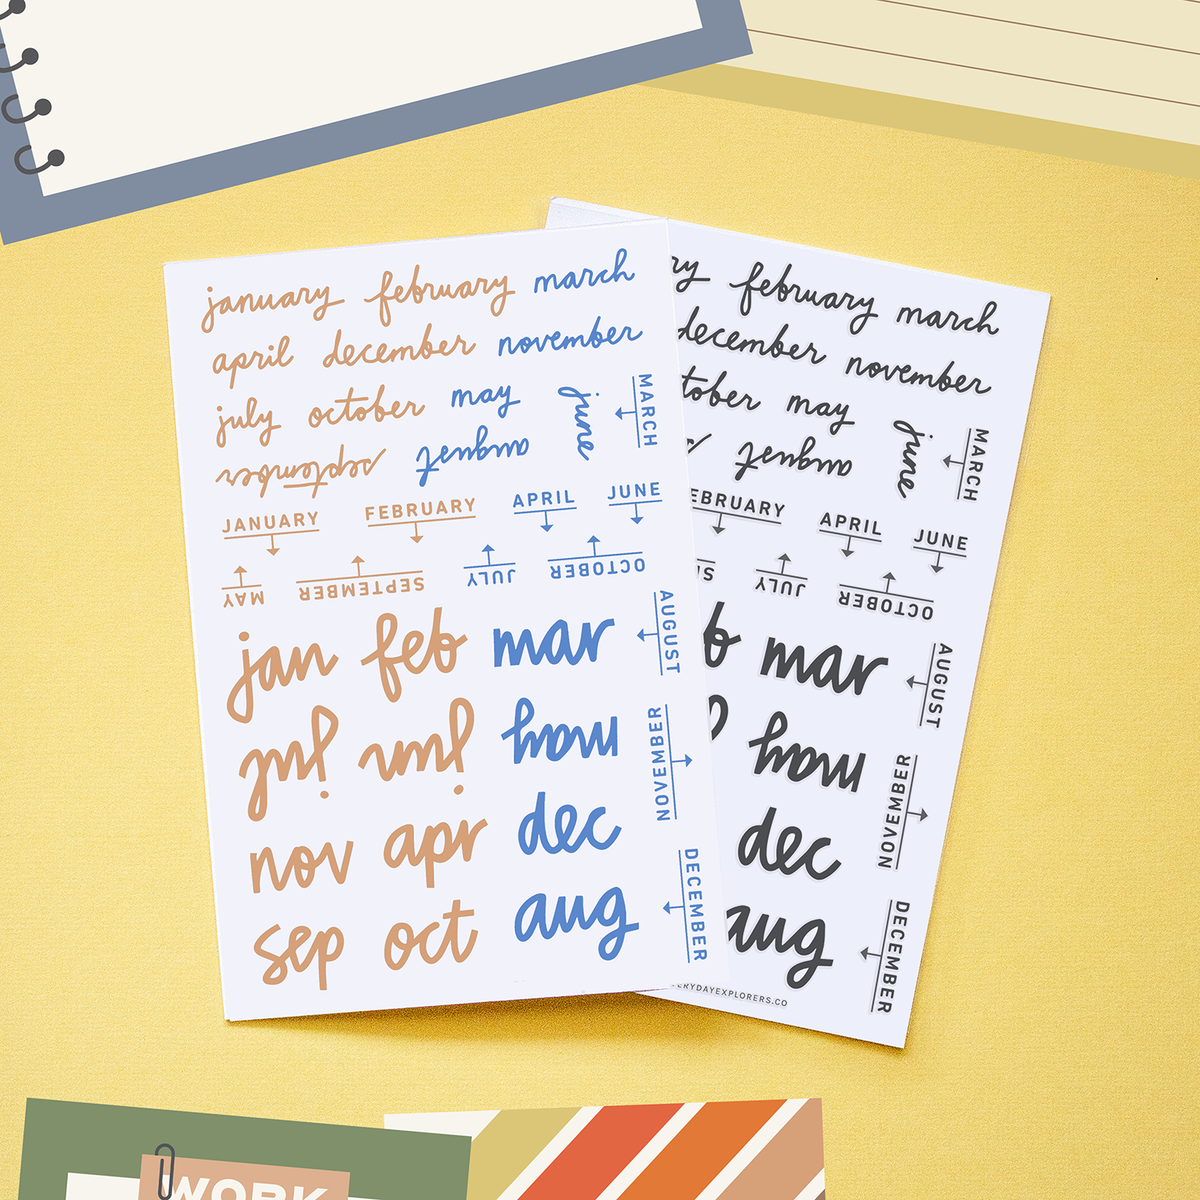 january february march
april december november
july october may june MARCH
september august
JANUARY FEBRUARY APRIL JUNE
MAY SEPTEMBER JULY OCTOBER
jan feb mar AUGUST
jul jun may NOVEMBER
nov apr dec DECEMBER
sep oct aug
ry february march
december november
tober may june MARCH
august
EBRUARY APRIL JUNE
JULY OCTOBER
b mar AUGUST
may NOVEMBER
dec DECEMBER
aug
ERYDAYEXPLORERS.CO
WORK